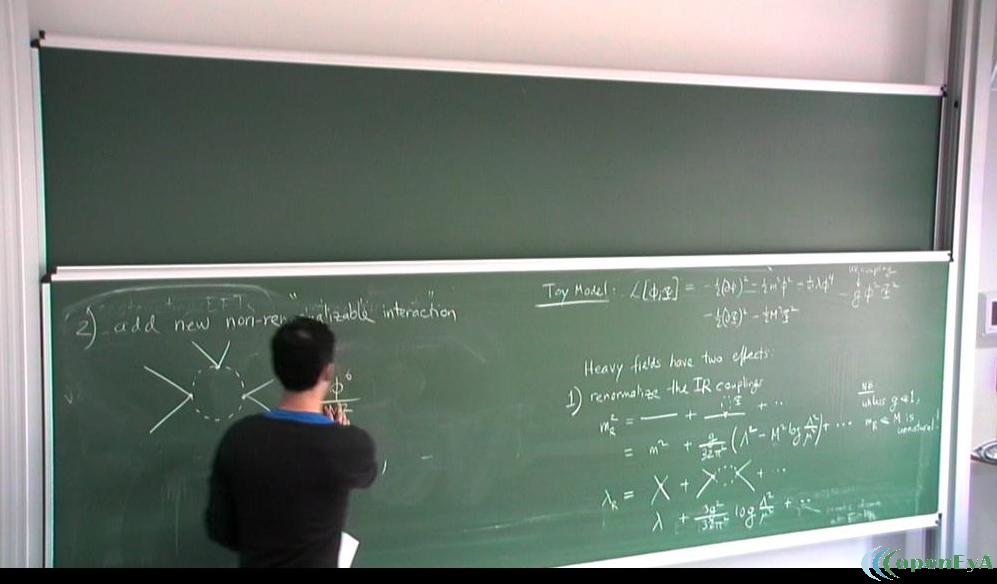 2) add new non-renormalizable interaction
φ⁶
Toy Model: L[φ,Φ] = -½(∂φ)² - ½m²φ² - 1/4! λφ⁴
UV coupling
g φ²Φ²
-½(∂Φ)² - ½M²Φ²
Heavy fields have two effects:
1) renormalize the IR couplings
m_R² = + + ··
= m² + g/32π² (Λ² - M² log Λ²/μ²) + ···
NB
unless g≪1,
m_R ≪ M is
unnatural!
λ_R = + + ···
λ + log Λ²/μ² + ··
openEyA